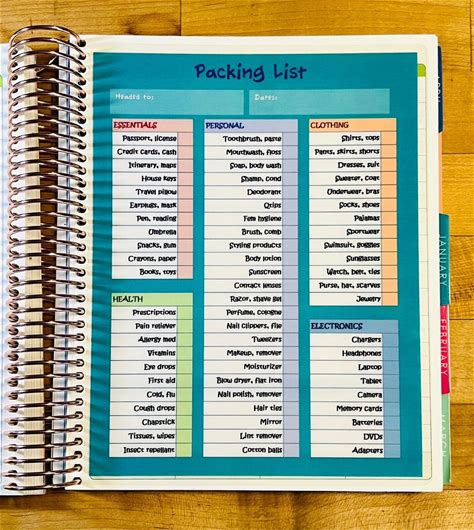 Packing List
Headed to:
Dates:
ESSENTIALS
Passport, license
Credit cards, cash
Itinerary, maps
House keys
Travel pillow
Earplugs, mask
Pen, reading
Umbrella
Snacks, gum
Crayons, paper
Books, toys
HEALTH
Prescriptions
Pain reliever
Allergy med
Vitamins
Eye drops
First aid
Cold, flu
Cough drops
Chapstick
Tissues, wipes
Insect repellant
PERSONAL
Toothbrush, paste
Mouthwash, floss
Soap, body wash
Shamp, cond
Deodorant
Qtips
Fem hygiene
Brush, comb
Styling products
Body lotion
Sunscreen
Contact lenses
Razor, shave gel
Perfume, cologne
Nail clippers, file
Tweezers
Makeup, remover
Moisturizer
Blow dryer, flat iron
Nail polish, remover
Hair ties
Mirror
Lint remover
Cotton balls
CLOTHING
Shirts, tops
Pants, skirts, shorts
Dresses, suit
Sweater, coat
Underwear, bras
Socks, shoes
Pajamas
Sportswear
Swimsuit, goggles
Sunglasses
Watch, belt, ties
Purse, hat, scarves
Jewelry
ELECTRONICS
Chargers
Headphones
Laptop
Tablet
Camera
Memory cards
Batteries
DVDs
Adapters
APRIL
JANUARY
FEBRUARY
MARCH